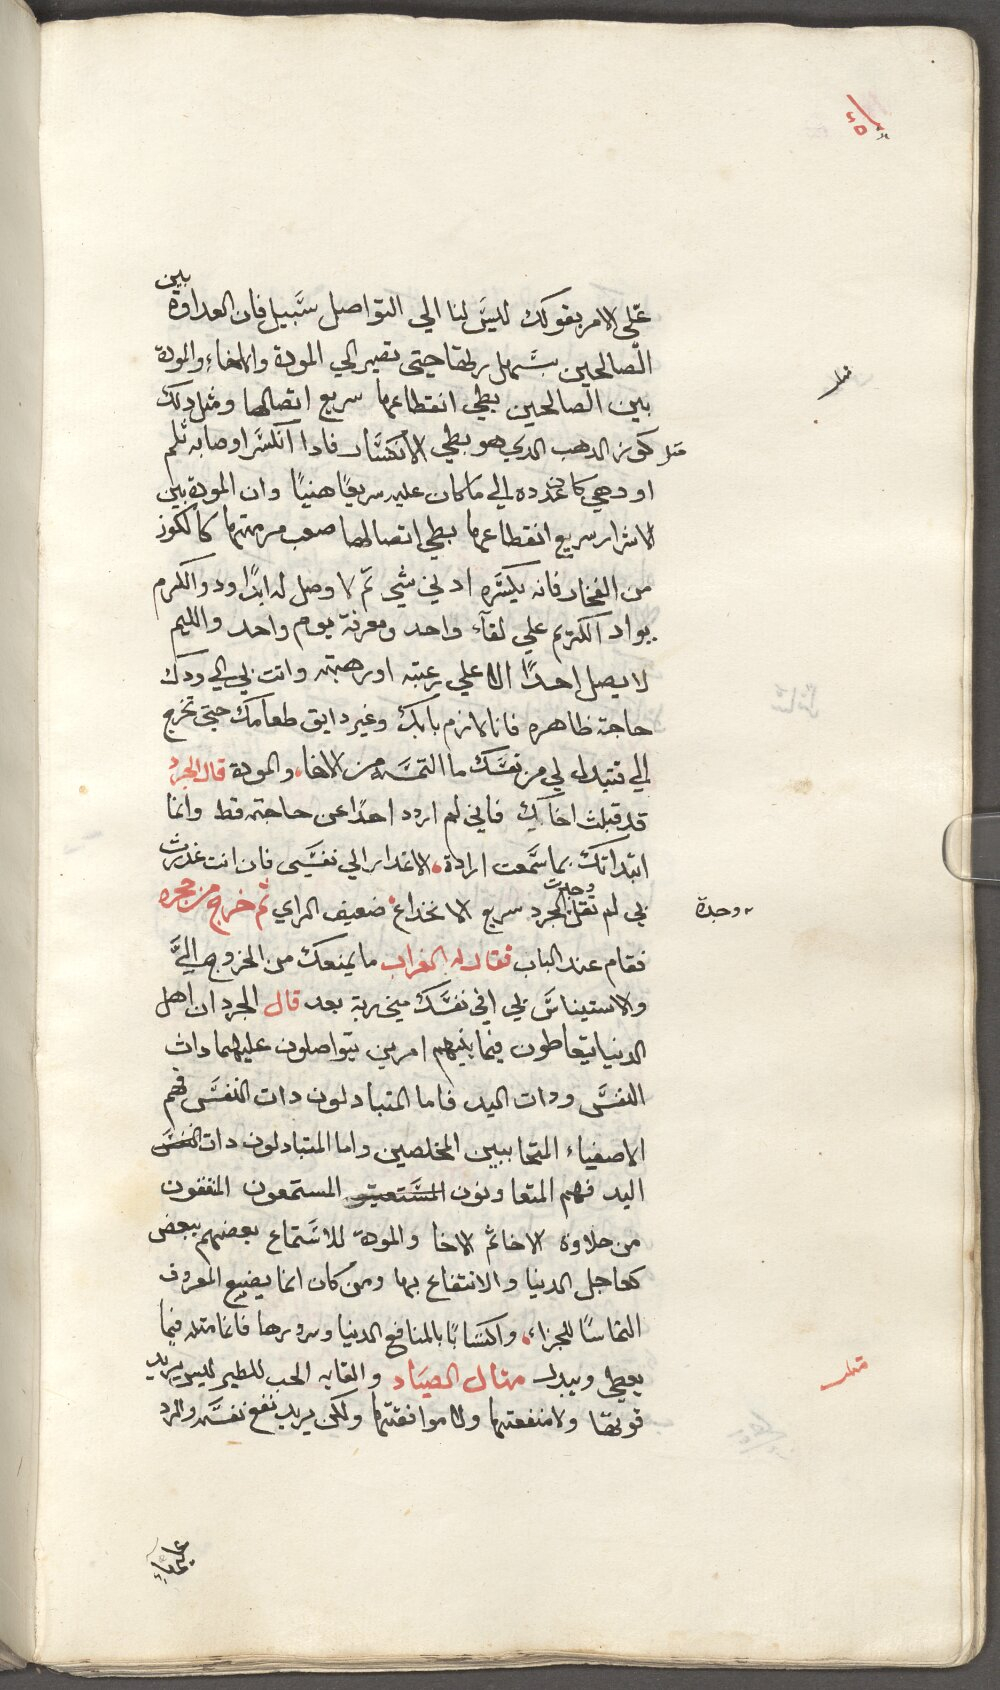 بين
عّلي الامر بقولك ليسَ لنا الي التواصل سَبيل فان العداوة
الصالحين بسَهل رطقا حيتي تصير الي المودة والاخاء والمودة
بين الصالحين بطي انقطاعها سريع اتصالها ومثل دلك
مثل كوز الدهب الدي هو بطي الانكسَار فادا انكسَر او صابه تلم
او دهي كا عدده الي ما كان عليه سريعًا هنيًا وان المودة بين
الاشرار سريع انقطاعها بطي اتصالها صعب مرمتها كالكوز
من الفخار فانه يكسَره ادني شي تم لا وصل له ابدًا ودو الكرم
يواد الكريم علي لقآء واحد ومعرفة يوم واحد والليم
لا يصل احدًا الا علي رغبته او رهبته وانت بي الي ودك
حاجة ظاهره فانا لازم بابك وغير دايق طعامك حيتي تخرج
الي فتبدل لي من نفسَك ما التمسَه من الاخاء والمودة قال الجرد
قد قبلت اخايك فاني لم ارود احدًا عن حاجته قط وانما
ابتداتك بما سَمعت ارادة الاغدار الي نفسَي فان انت غدرت
بي لم تقل وجدت الجرد سريع الانخداع ضعيف الراي ثم خرج من جحره
وجدة
فقام عند الباب فقال له الغراب ما يمنعك من الخروج اليَّ
والاستيناسَ بي افي نفسَك مني ريبة بعد قال الجرد ان اهل
الدنيا يتعاطون فيما بينهم امرين يتواصلون عليهما دات
النفسَ ودات اليد فاما المتبادلون دات النفسَ فهم
الاصفياء المتحاببين المخلصين واما المتبادلون دات النفسَ
اليد فهم المتعاونون المستمعون المنفقون
من حلاوة الاخا ثم الاخا والمودة للاسَتماع بعضهم ببعض
كعاجل الدنيا والانتفاع بها ومن كان انما يضيع المعروف
التماسًا للجزاء واكتسَابًا بالمنافع الدنيا وسرورها فانما مثله فيما
يعطي ويبدل متال الصيَاد والقايه الحب للطير ليس يريد
قوتها ولا منفعتها ولا موافقتها ولكن يريد نفع نفسَه والرد